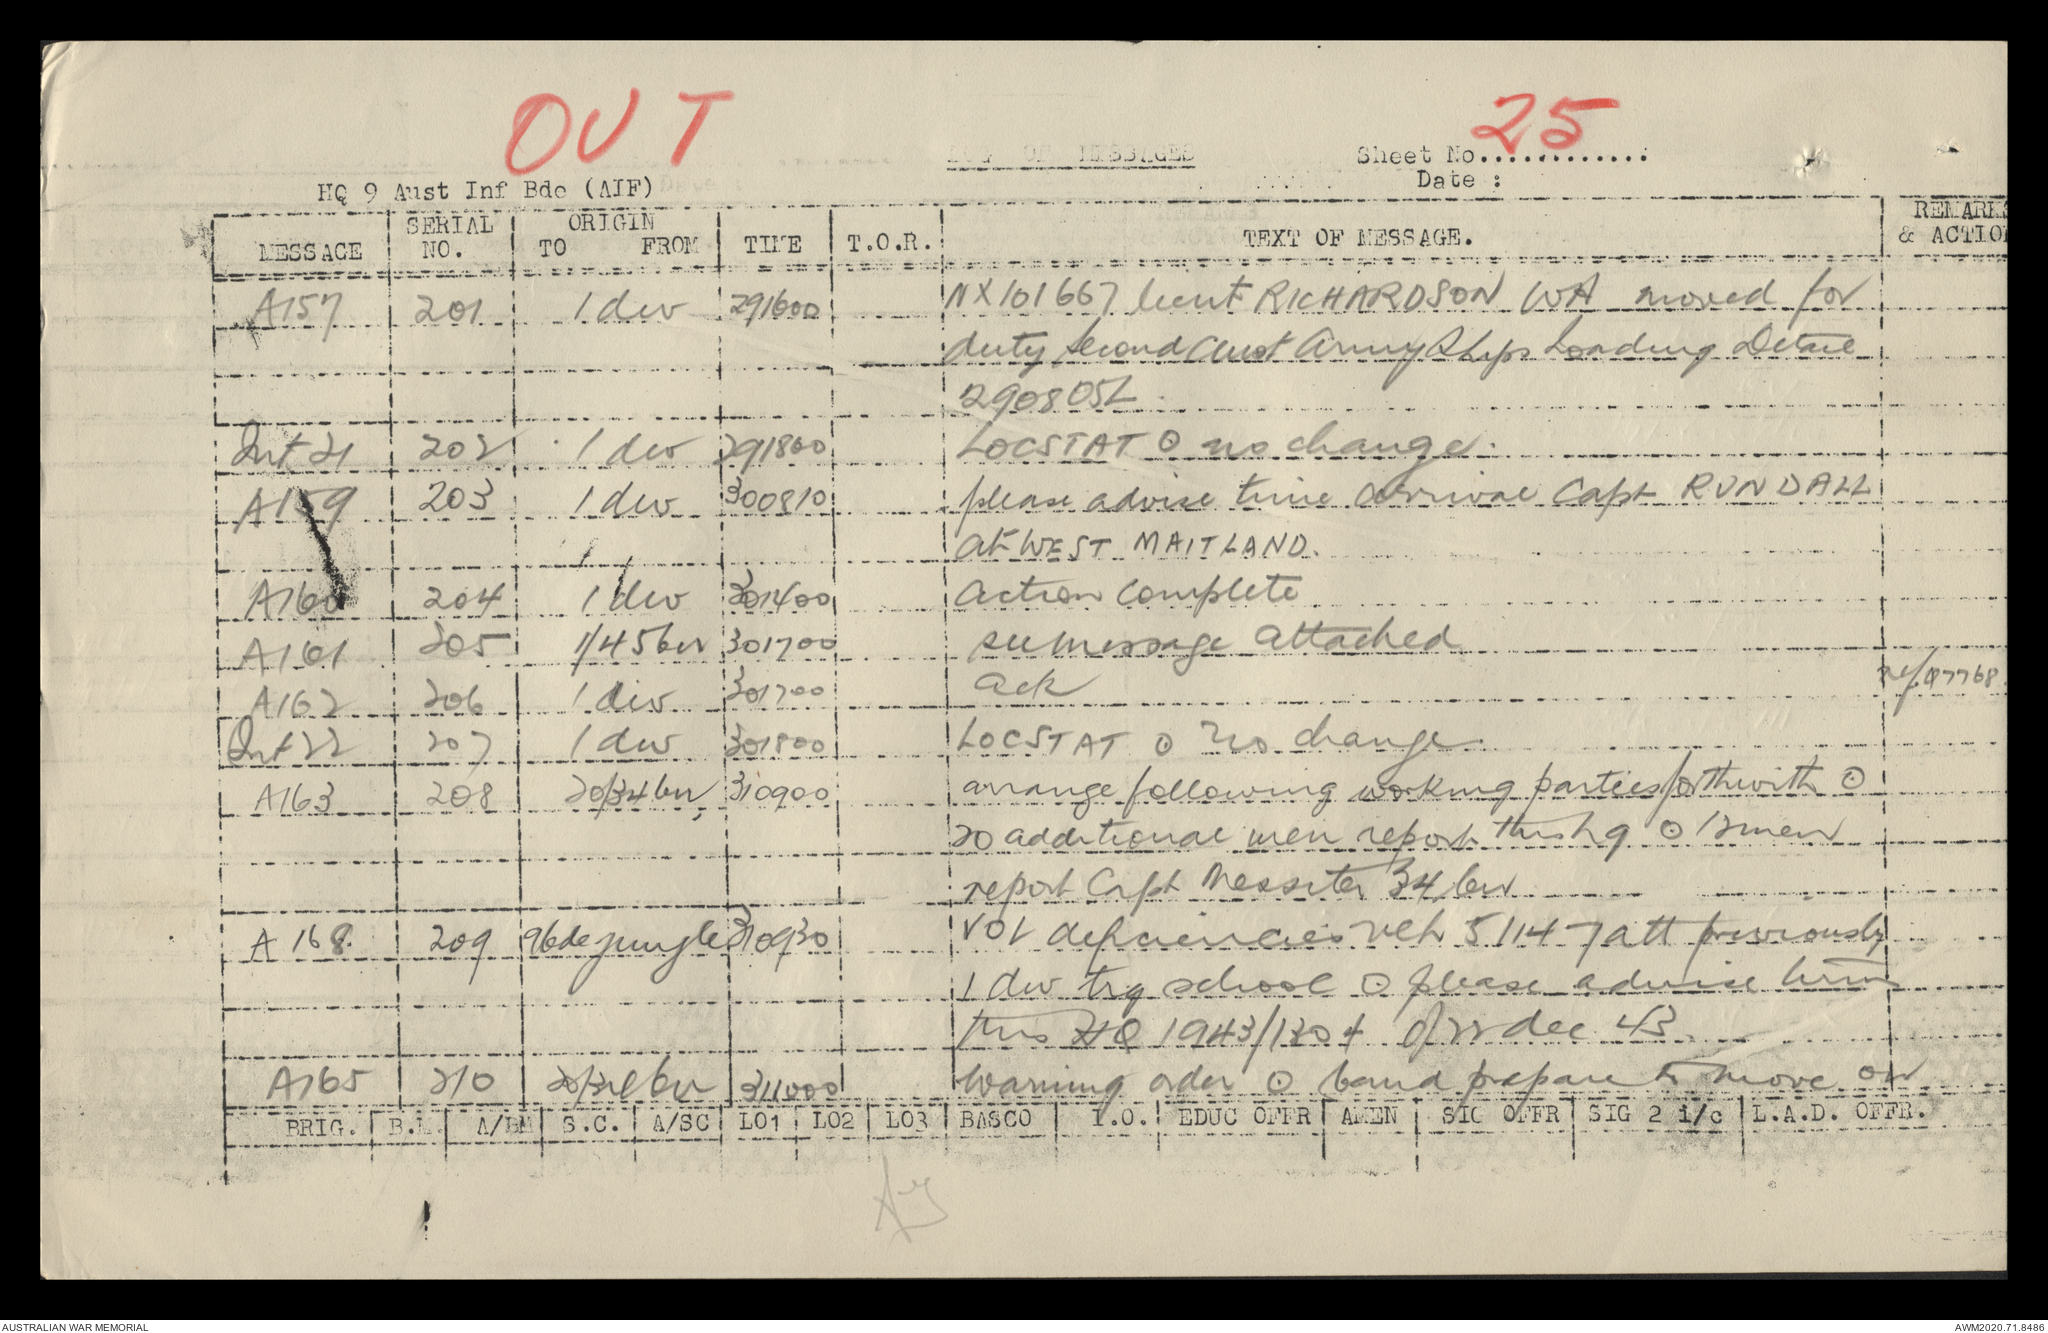 OUT
25
LOG OF MESSAGES
Sheet No.............
HQ 9 Aust Inf Bde (AIF)
Date :
MESSAGE SERIAL NO. ORIGIN TO FROM TIME T.O.R. TEXT OF MESSAGE. REMARKS & ACTION
A157 201 1 div 291600 NX101667 Lieut RICHARDSON WA moved for
duty Second Aust Army Ships Loading Detail
290805L
Int 21 202 1 div 291800 LOCSTAT ⊙ no change.
A159 203 1 div 300810 please advise time arrival Capt RUNDALL
at WEST MAITLAND.
A160 204 1 div 301400 action complete
A161 205 1/45 bn 301700 see message attached
A162 206 1 div 301700 ack ref 07768.
Int 22 207 1 div 301800 LOCSTAT ⊙ no change.
A163 208 20/34 bn 310900 arrange following working parties forthwith ⊙
20 additional men report this hq ⊙ 12 men
report Capt Messiter 34 bn
A 168 209 jungle 310930 VOL deficiencies veh 51147 att previously
1 div trg school ⊙ please advise
this HQ 1943/ of 22 dec 43.
A165 210 bn 311000 Warning order ⊙ band prepare to move on
BRIG. B.M. A/BM S.C. A/SC LO1 LO2 LO3 BASCO I.O. EDUC OFFR AMEN SIG OFFR SIG 2 i/c L.A.D. OFFR.
AUSTRALIAN WAR MEMORIAL
AWM2020.71.8486